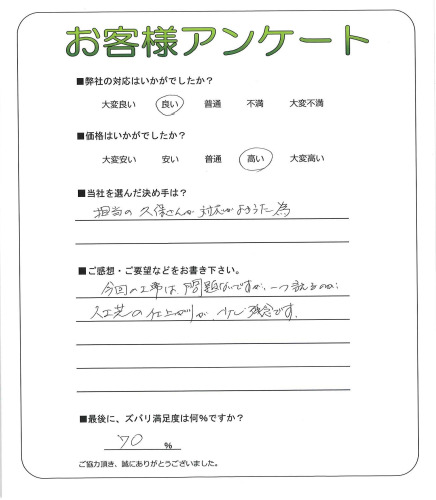 お客様アンケート
■弊社の対応はいかがでしたか？
大変良い 良い 普通 不満 大変不満
■価格はいかがでしたか？
大変安い 安い 普通 高い 大変高い
■当社を選んだ決め手は？
担当の久保さんが対応がよかった為
■ご感想・ご要望などをお書き下さい。
今回の工事は、問題ないですが、一つ言えるのは、
人工芝の仕上がりが、少し残念です。
■最後に、ズバリ満足度は何％ですか？
70 ％
ご協力頂き、誠にありがとうございました。